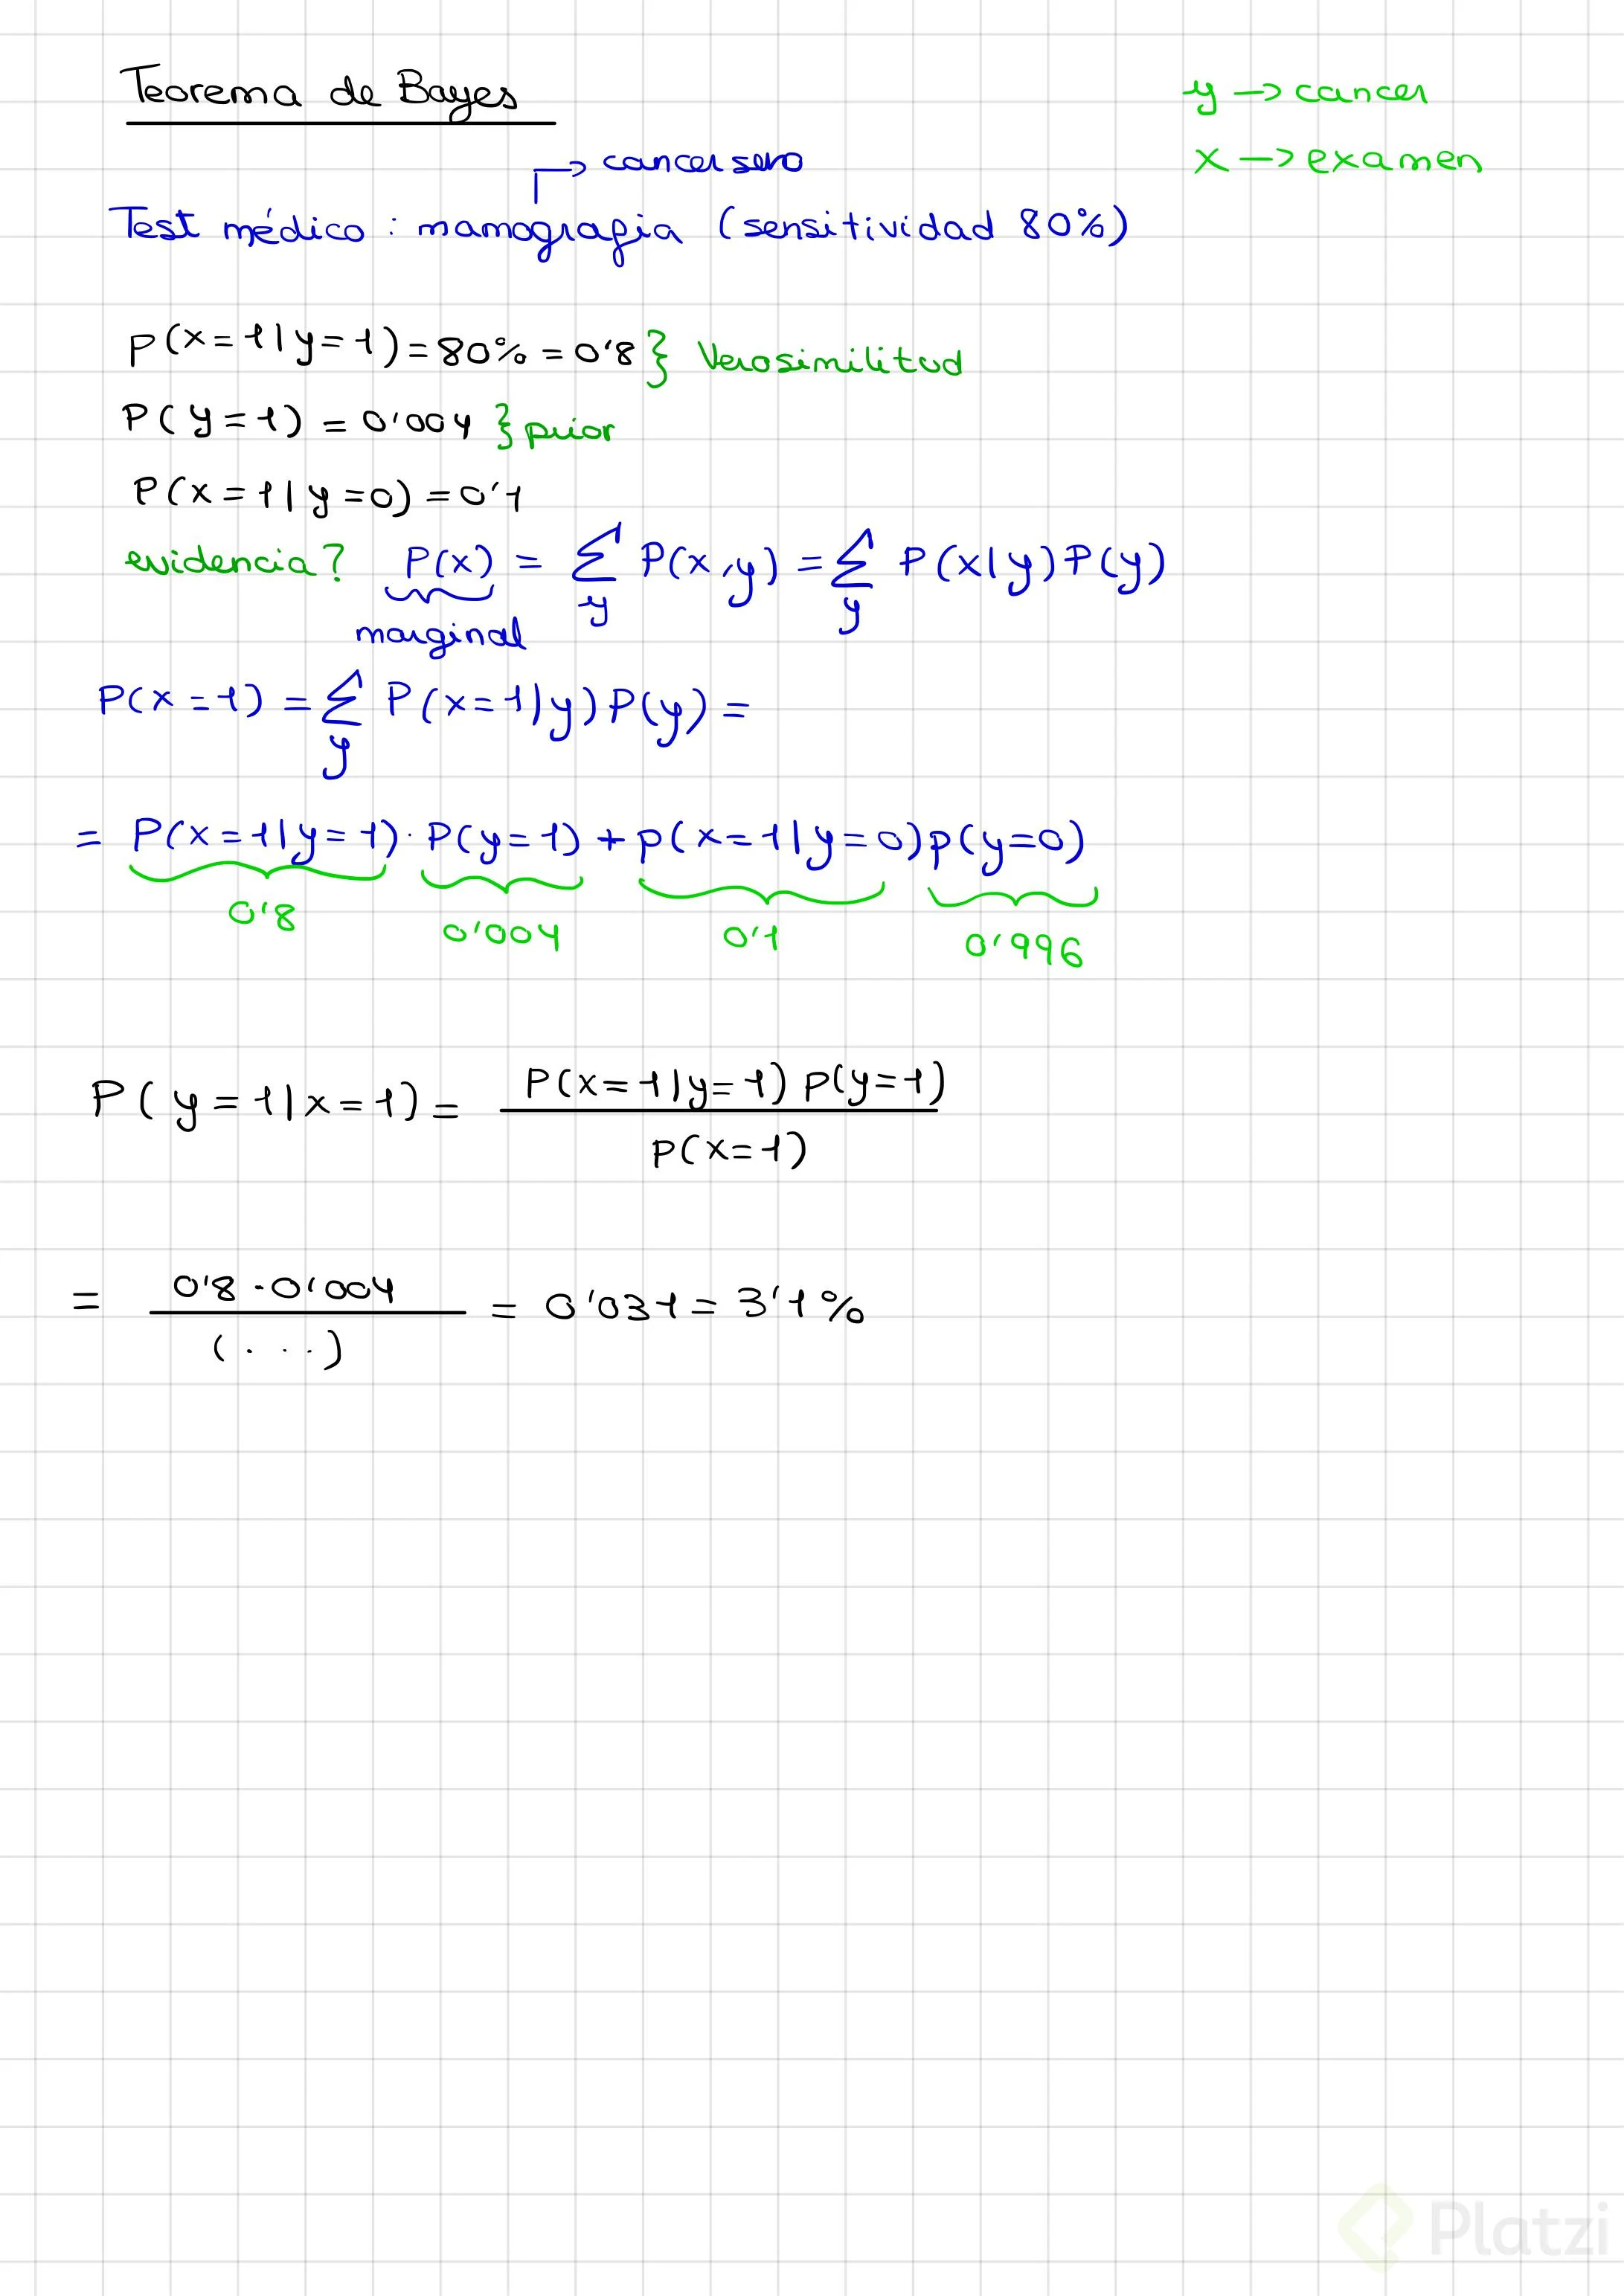 Teorema de Bayes
y → cancer
x → examen
cancer seno
Test médico : mamografia (sensitividad 80%)
P(x=1|y=1) = 80% = 0'8 } Verosimilitud
P(y=1) = 0'004 } prior
P(x=1|y=0) = 0'1
evidencia? P(x) = ∑ P(x,y) = ∑ P(x|y)P(y)
y y
marginal
P(x=1) = ∑ P(x=1|y)P(y) =
y
= P(x=1|y=1) · P(y=1) + p(x=1|y=0)p(y=0)
0'8 0'004 0'1 0'996
P(y=1|x=1) = P(x=1|y=1) P(y=1)
p(x=1)
= 0'8 · 0'004 = 0'031 = 3'1%
(...)
Platzi